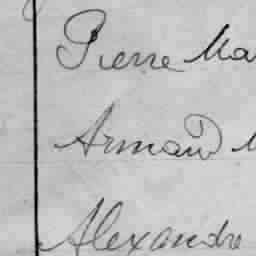 Pierre Ma
Armand M
Alexandre